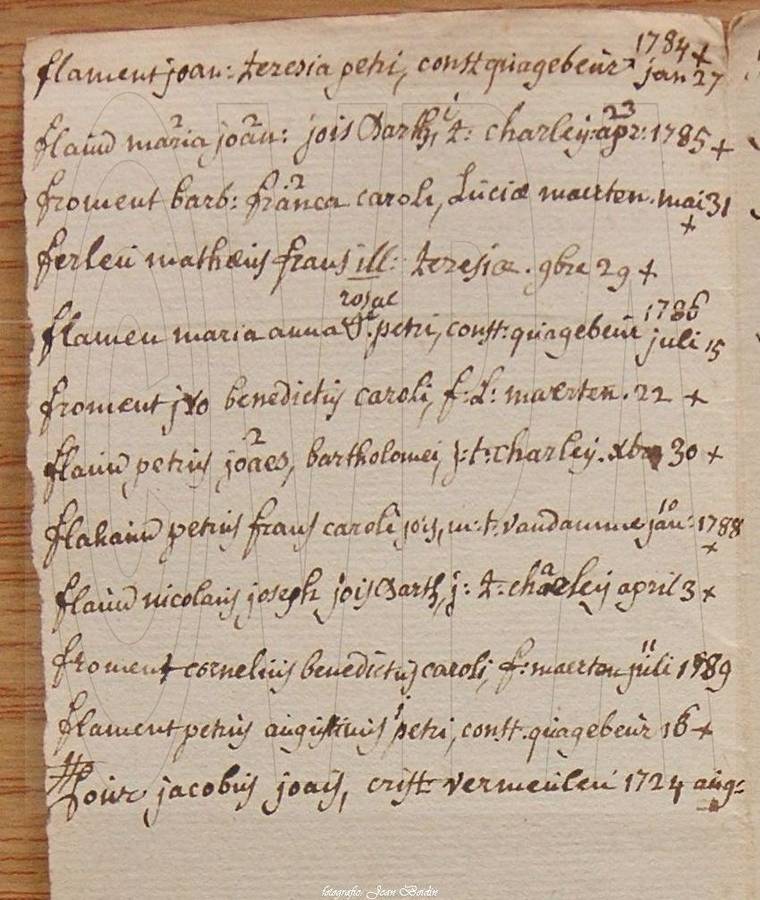 flament joan: teresia petri, const quagebeur 1784 jan 27 +
flaud maria joan: jois Barth, j: t: charley: apr: 23 1785 +
froment barb: franca caroli, Luciæ maerten. mai 31 +
ferleu mathæus frans ill: teresiæ. 9bre 29 +
flamen maria anna rosae d. petri, const: quagebeur 1786 juli 15
froment jxo benedictus caroli, f: L: maerten. 22 +
flaud petrus joães, bartholomei, j: t: charley. xbre 30 +
flahaud petrus frans caroli jois, m: t: vandamme jan: 10 1788 +
flaud nicolaus joseph jois Barth, j: t: charley april 3 +
froment cornelius benedictus caroli, f: maerten juli 11 1789
flament petrus augustinus petri, const. quagebeur 16 +
jacobus joais, crist vermeulen 1724 aug:
fotografie: Joan Boidin